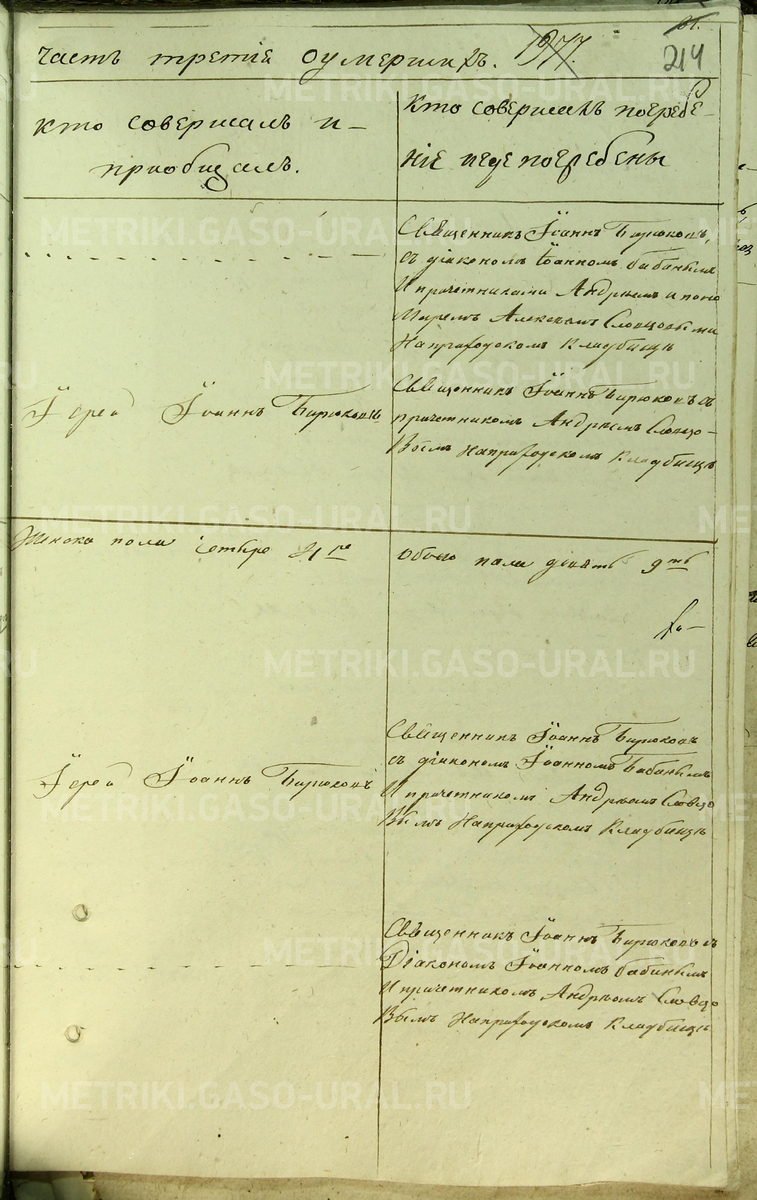 часть третiя оумершихъ. 1977.
214
кто совершалъ и –
приобщалъ.
Кто совершалъ погребе-
нiе игде погребены
Священникъ Iоаннъ Бирюковъ,
съ дiакономъ Iоанномъ бабинымъ
И причетниками Андреемъ и поно
Маремъ Алексеемъ Словцовыми
Наприходскомъ Кладбище
Iерей Iоаннъ Бирюковъ
Священникъ Iоаннъ Бирюковъ съ
причетникомъ Андреемъ Словцо-
Вымъ Наприходскомъ Кладбище
Женска пола четыре 4ре
Обоего пола девять 9ть
Iерей Iоаннъ Бирюковъ
Священникъ Iоаннъ Бирюковъ
съ дiакономъ Iоанномъ бабинымъ
И причетникомъ Андреемъ Словцо
Вымъ Наприходскомъ Кладбище
Священникъ Iоаннъ Бирюковъ съ
Дiакономъ Iоанномъ бабинымъ
И причетникомъ Андреемъ Словцо
Вымъ Наприходскомъ Кладбище
METRIKI.GASO-URAL.RU